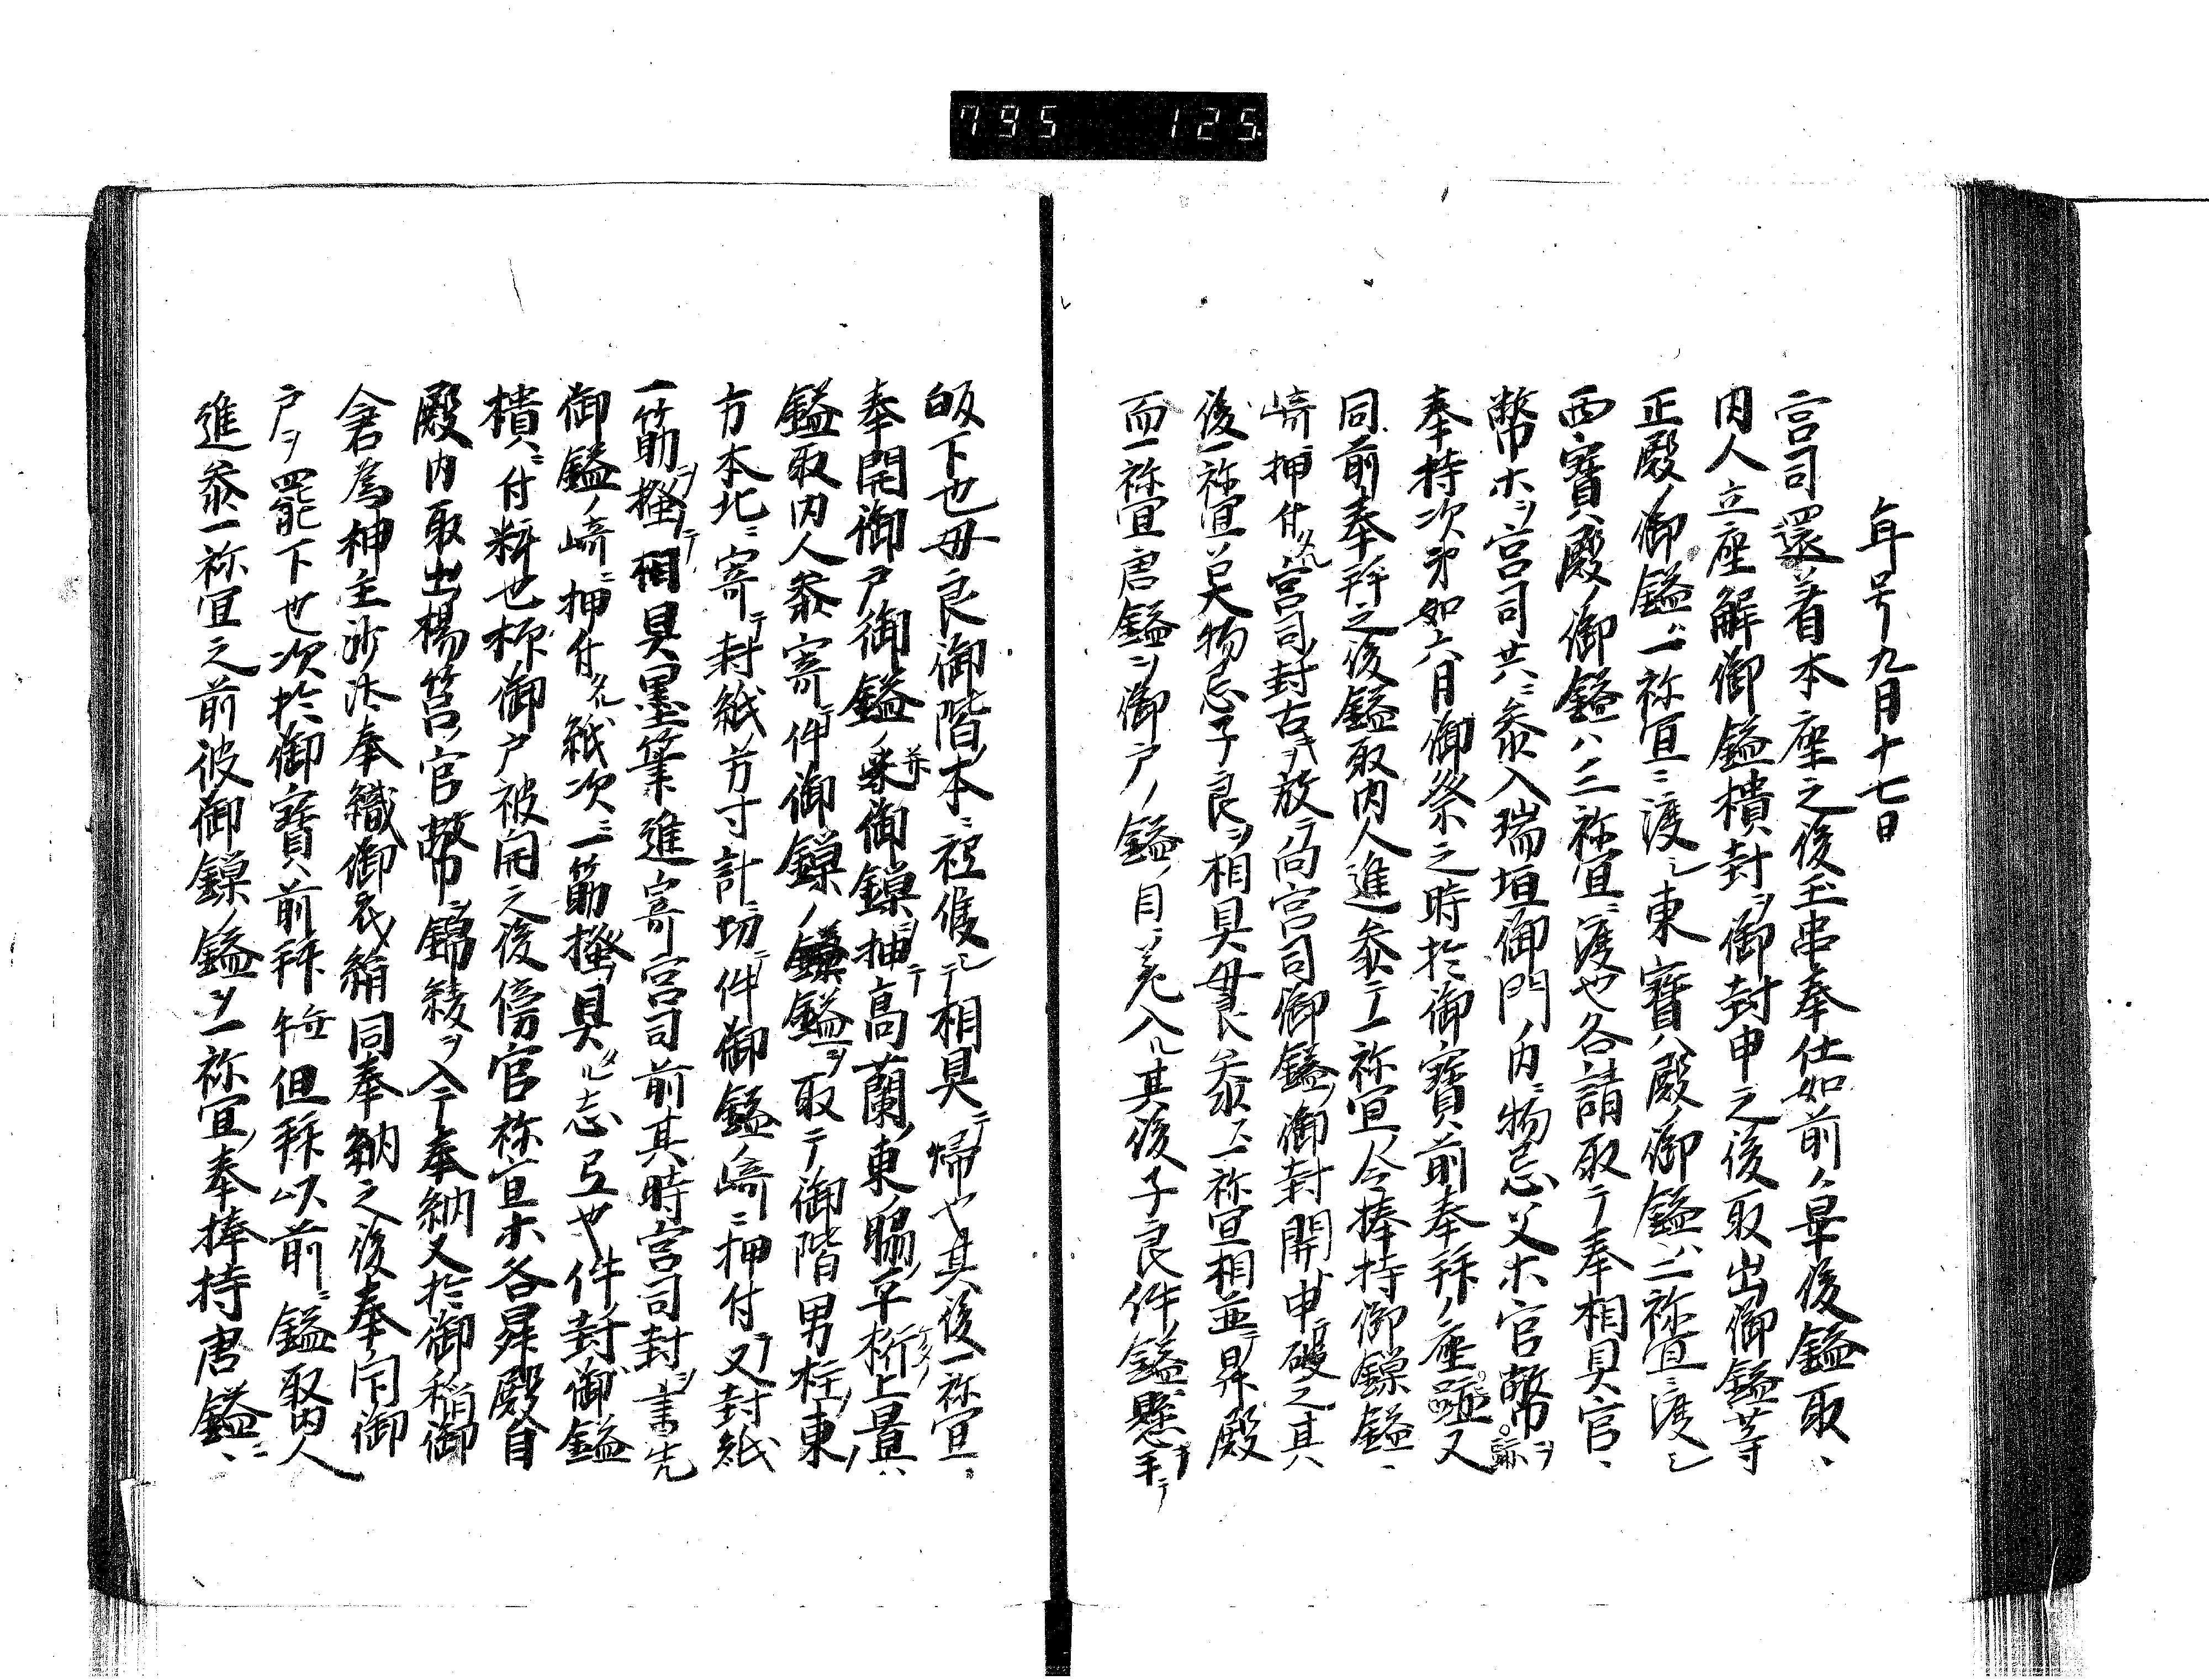 795 125
年号九月十七日
宮司還着本座之後玉串奉仕如前々畢後鎰取ノ
内人立座解御鎰樻ノ封ヲ御封申之後取出御鎰等
正殿ノ御鎰ハ一祢宜ニ渡シ東寳殿ノ御鎰ハ二祢宜ニ渡シ
西寳殿ノ御鎰ハ三祢宜ニ渡也各請取テ奉相具官ノ
幣ホヲ宮司共ニ参入瑞垣御門ノ内ニ物忌父ホ官幣ヲ
奉持次第如六月御祭之時於御寳前奉拜ノ座又
同前奉拜之後鎰取内人進参テ一祢宜ノ令捧持御鏁鎰ノ
崎ニ押付タル宮司ノ封古キヲ放テ向宮司御鎰ノ御封開ト申テ破之其
後一祢宜大物忌子良ヲ相具母良参ス一祢宜相並テ昇殿
而一祢宜唐鎰ヲ御戸ノ鎰ノ目ニ差入ル其後子良件ノ鎰ニ懸手テ
皈下也母良御階ノ本ニ祗候シテ相具テ帰也其後一祢宜
奉開御戸御鎰ノ并御鏁ヲ抽テ高蘭ノ東ノ上ニ置ハ
鎰取内人参寄テ件御鏁ノ鎰ヲ取テ御階男柱ノ東ノ
方本北ニ寄テ封紙ノ方寸計ニ切テ件御鎰ノ崎ニ押付テ又封紙
一筋ヲ相具墨筆進寄宮司前其時宮司封ヲ書先
御鎰ノ崎ニ押付タル紙次ニ一筋具タル志也件封御鎰
樻ニ付料也御戸被開之後傍官祢宜ホ各昇殿自
殿内取出楊筥官幣ノ錦綾ヲ入テ奉納又於御稲御
倉為神主沙汰奉織御衣ノ絹同奉納之後奉閇御
戸ヲ罷下也次於御寳前拜但拜以前ニ鎰取内人
進参一祢宜之前彼御鏁ノ鎰ヲ一祢宜ノ奉捧持唐鎰ニ